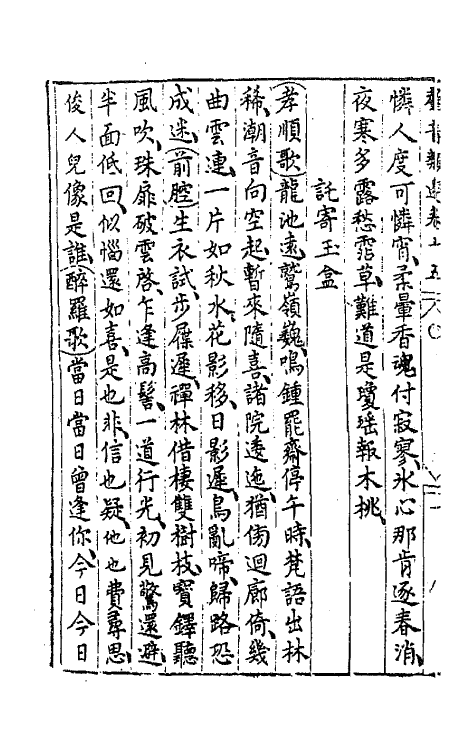 憐人度可憐宵、柔暈香魂付寂寥、氷心那肯逐春消、
夜寒多露愁霑草、難道是瓊瑤報木桃、
託寄玉盒
孝順歌龍池遠、鷲嶺巍、鳴鍾罷齋停午時、梵語出林
稀、潮音向空起、暫來隨喜、諸院逶迤、猶傍迴廊倚、幾
曲雲連、一片如秋水、花影移、日影遲、鳥亂啼、歸路恐
成迷、前腔生衣試、步屧遲、禪林借棲雙樹枝、寶鐸聽
風吹、珠扉破雲啓、乍逢高髻、一道行光、初見驚還避、
半面低回、似惱還如喜、是也非、信也疑、他也費尋思、
俊人兒像是誰、醉羅歌當日當日曾逢你、今日今日